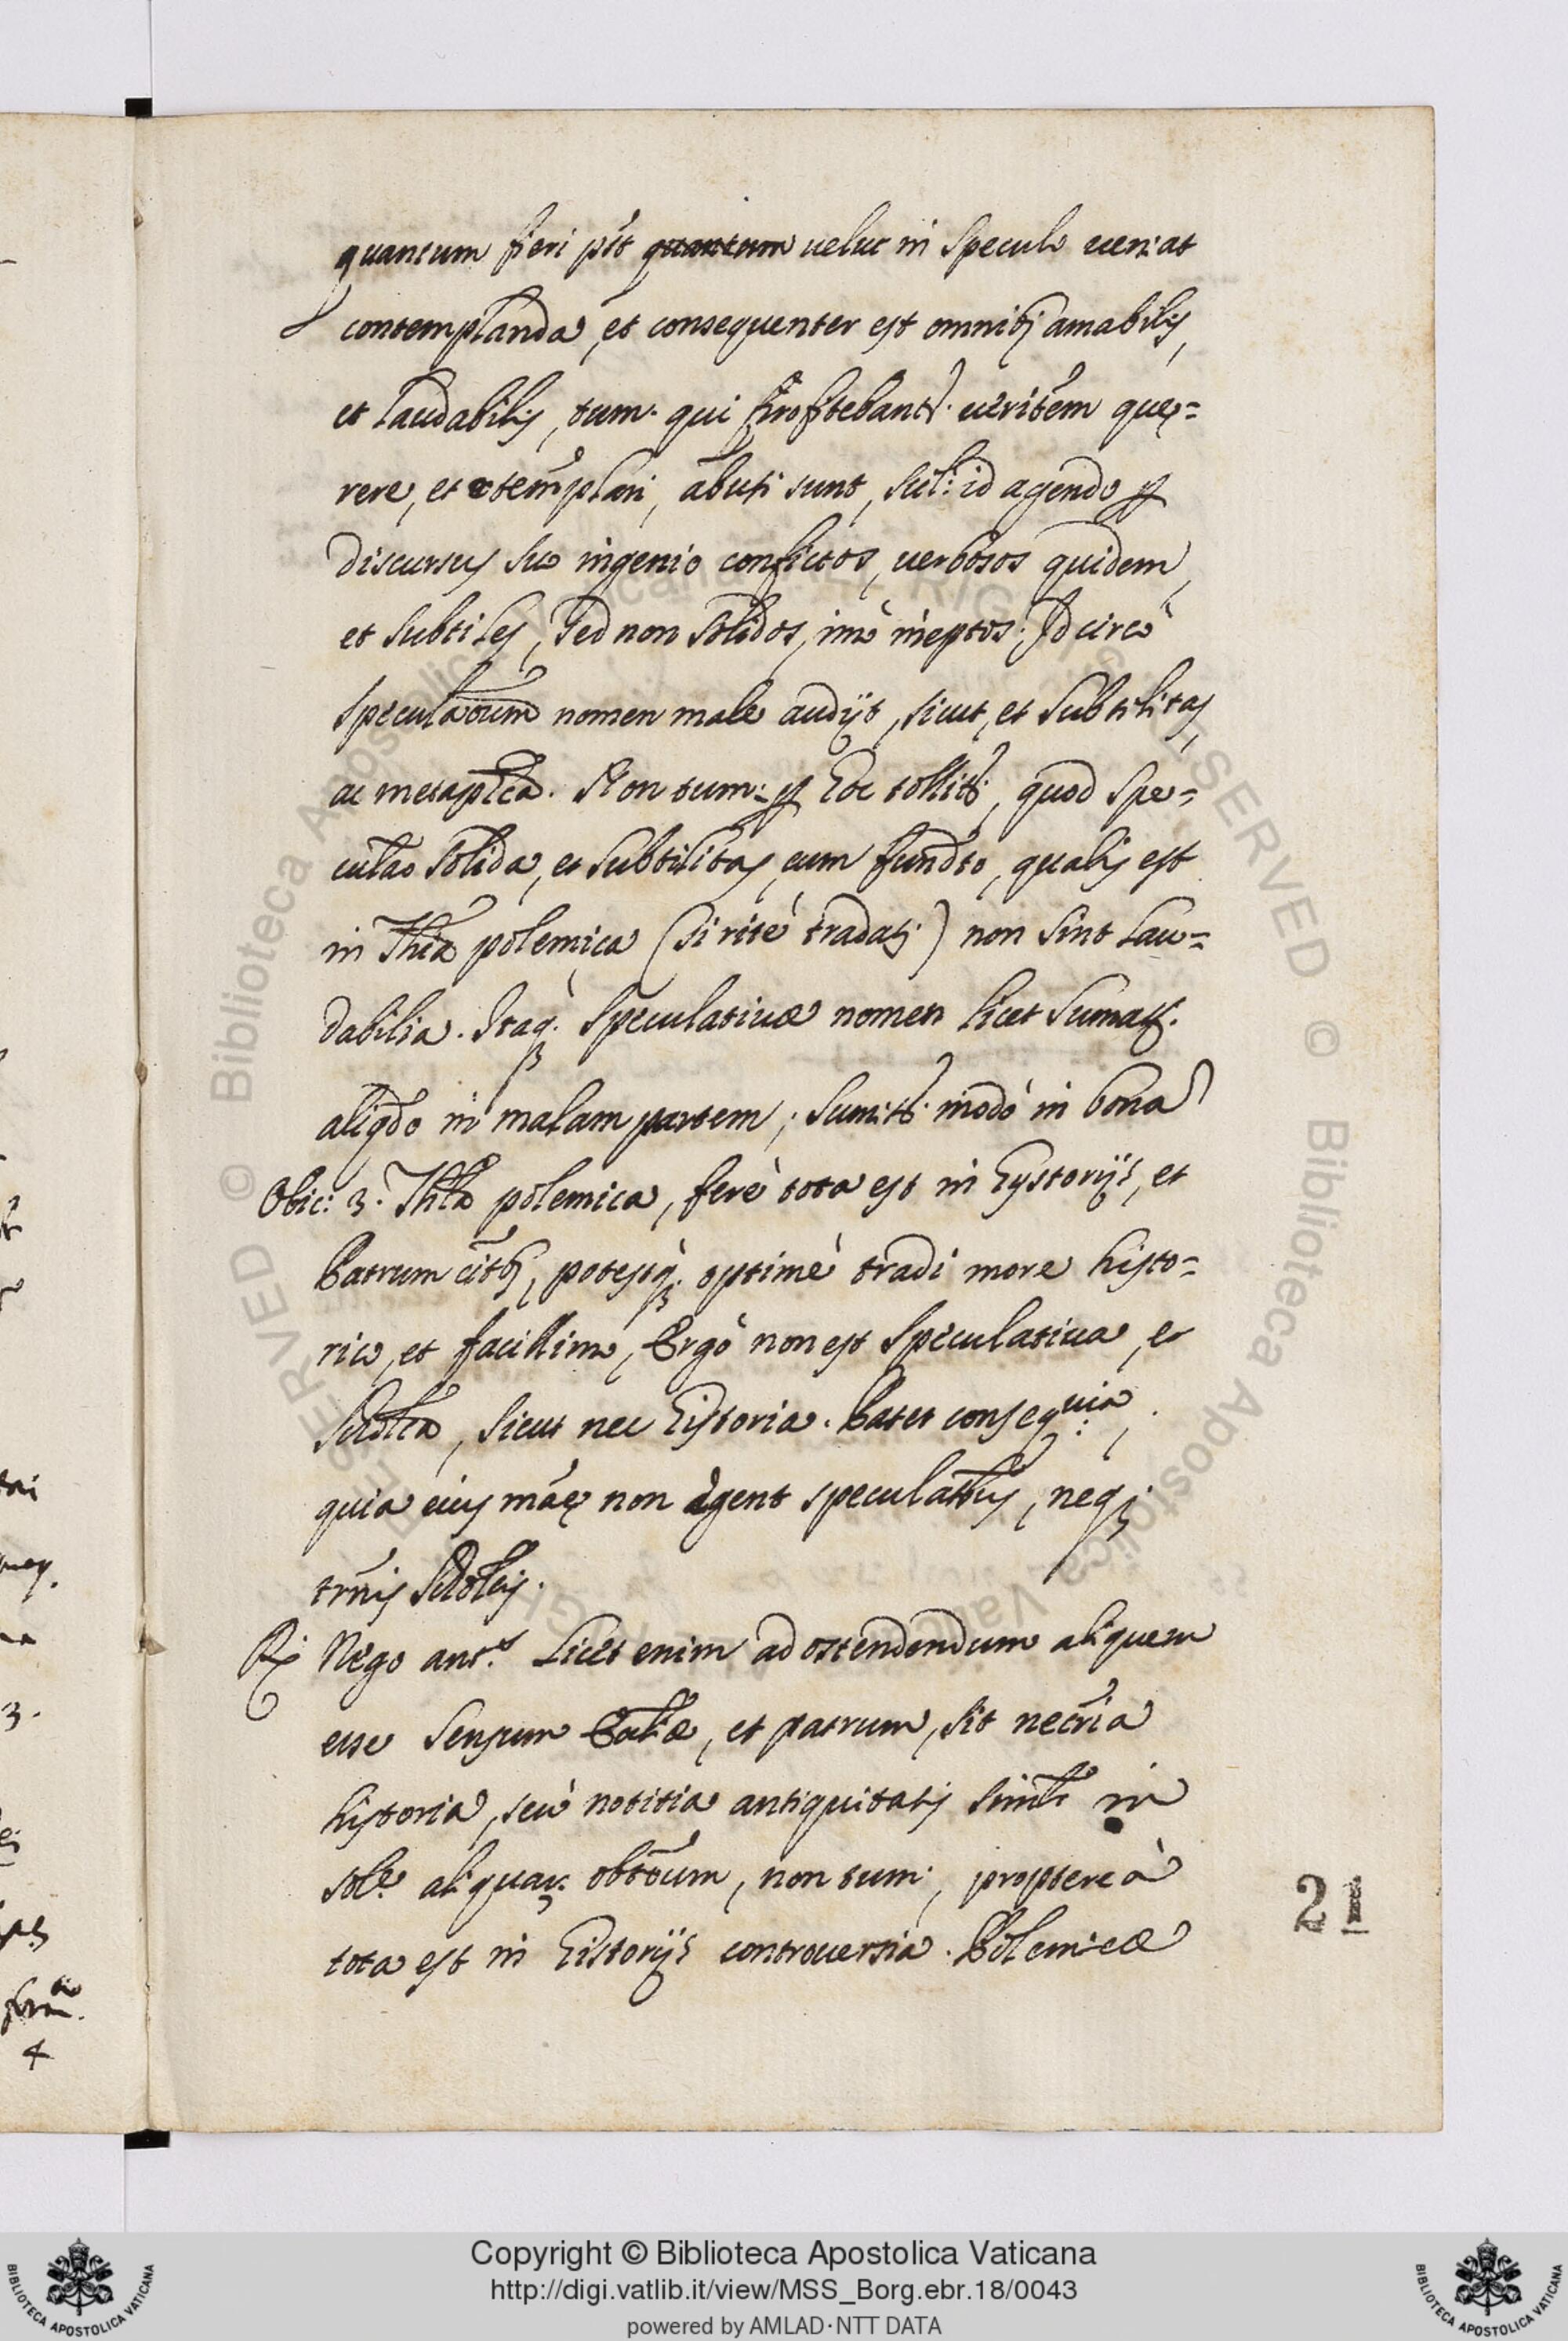 quantum fieri põt quantum uelut in speculo ueniat
contemplanda, et consequenter est omnibꝫ amabilis,
et laudabilis, tum. qui profitebantr. ueritẽm quę=
rere, et cõtemplari, abuti sunt, scil: id agendo ꝑ
discursus suo ingenio confictos, uerbosos quidem,
et subtiles, sed non solidos, imò ineptos. Idcircò
nomen male audijt, sicut, et subtilitas,
ac metaphcã. Non tum: ꝑ hoc tollitr, quod spe=
culão solida, et subtilitas, cum fundto, qualis est
in Thĩa polemica (si ritè tradatr) non sint lau=
dabilia. Itaqꝫ. speculatiuæ nomen licet sumatr.
aliqdo in malam partem; sumitr. modò in bona
Obic: 3. Thĩa polemica, ferè tota est in hystorijs, et
Patrum potestqꝫ. optimè tradi more histo=
rico, et facillimo, Ergò non est speculatiua, et
Schõlca, sicut nec historia. Patet conseq:uia,
quia eius mãę non egent neqꝫ
trmis Schõlcis.
Rꝫ Nego ant.s Licet enim ad ostendendum aliquem
esse sensum et patrum, sit necria
historia, seù notitia antiquitatis in
sole aliquar: obtõum, non tum:, propterea
tota est in historijs controuersia. Polemicæ
21
Copyright © Biblioteca Apostolica Vaticana
http://digi.vatlib.it/view/MSS_Borg.ebr.18/0043
powered by AMLAD·NTT DATA